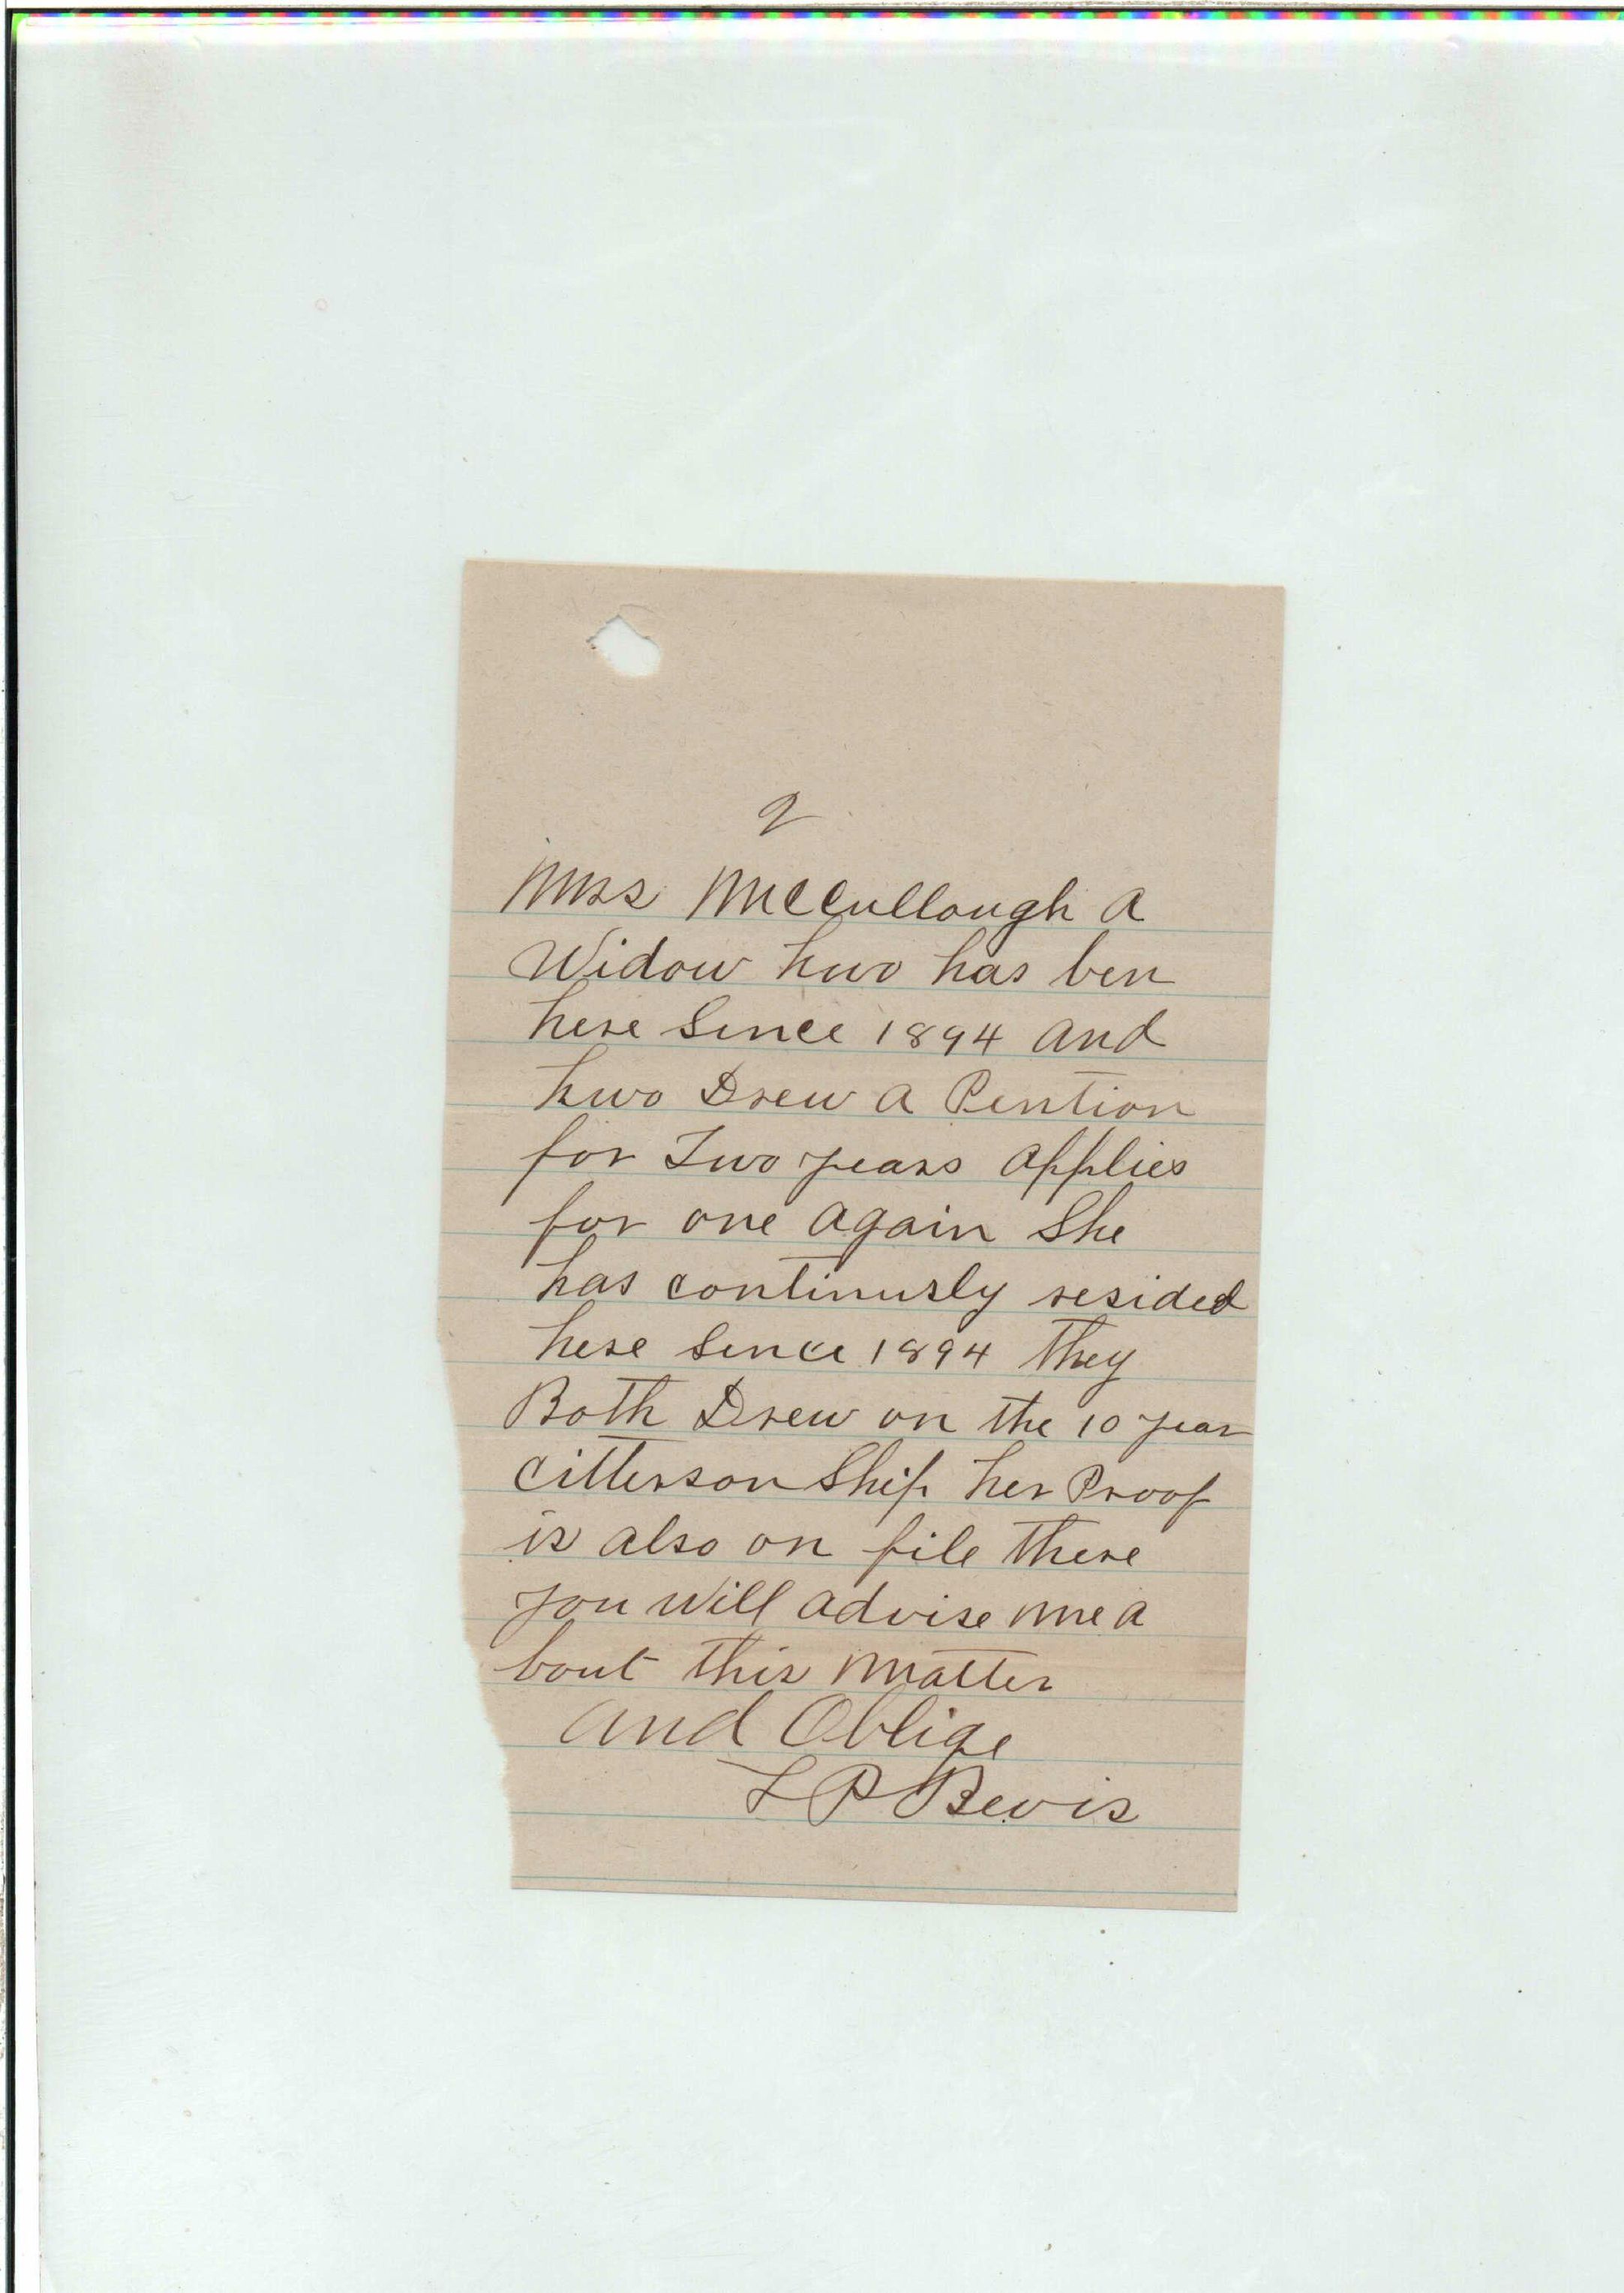 2
Mrs McCullough a
Widow hwo has ben
here Since 1894 and
hwo Drew a Pention
for Two years applies
for one again She
has continusly resided
here Since 1894 They
Both Drew on the 10 year
cittersonship her Proof
is also on file there
you will advise me a
bout this matter
and Oblige
L P Bevis